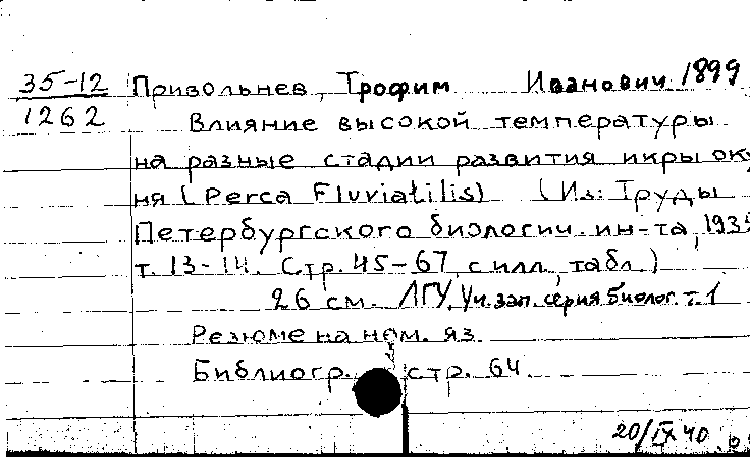 35-12 Привольнев, Трофим Иванович 1899
1262 Влияние высокой температуры
на разные стадии развития икры оку
ня (Perca Fluviatilis) (Из: Труды
Петербургского биологич. ин-та, 1935
т. 13-14. Стр. 45-67, с илл., табл.)
26 см. ЛГУ. Уч. зап. серия биолог. т. 1
Резюме на нем. яз.
Библиогр. стр. 64
20/IX 40